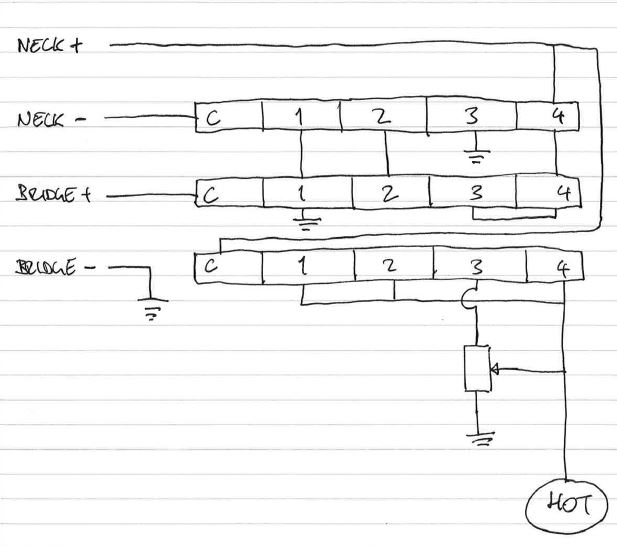 NECK +
NECK - C 1 2 3 4
BRIDGE + C 1 2 3 4
BRIDGE - C 1 2 3 4
HOT